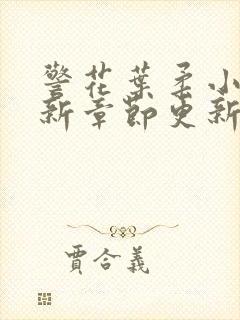 警花葉柔小
新章節更新
賈合義